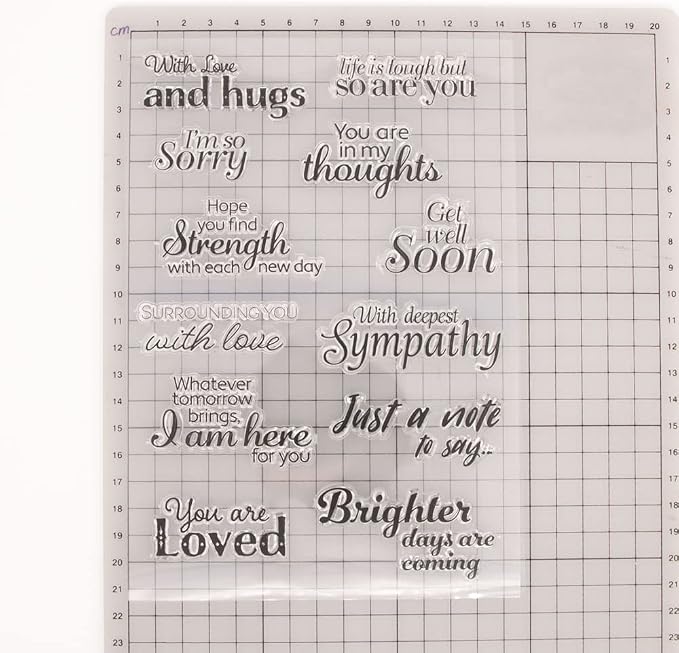 1 2 3 4 5 6 7 8 9 10 11 12 13 14 15 16 17 18 19 20
cm
1 2 3 4 5 6 7 8 9 10 11 12 13 14 15 16 17 18 19 20 21 22 23
With Love
and hugs
life is tough but
so are you
I'm so
Sorry
You are
in my
thoughts
Hope
you find
Strength
with each new day
Get
well
Soon
SURROUNDING YOU
with love
With deepest
Sympathy
Whatever
tomorrow
brings,
I am here
for you
Just a note
to say...
You are
Loved
Brighter
days are
coming
1 2 3 4 5 6 7 8 9 10 11 12 13 14 15 16 17 18 19 20 21 22 23